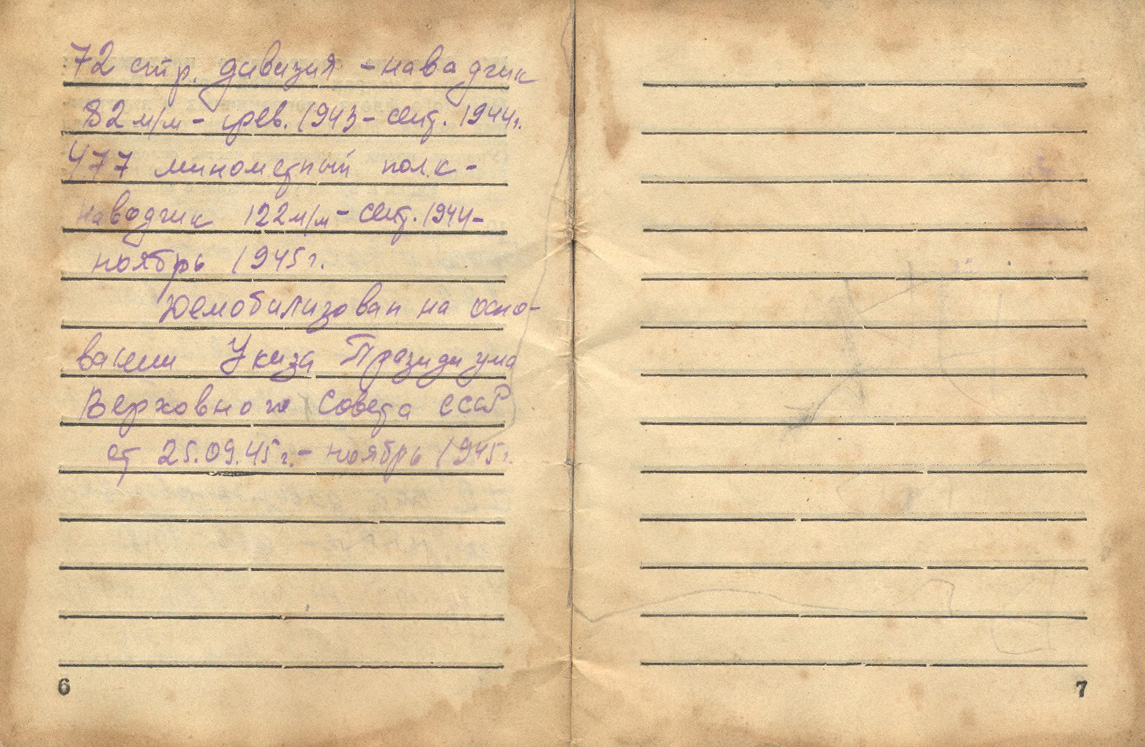 72 стр. дивизия - наводчик
82 м/м - фев. 1943 - сент. 1944г.
477 минометный полк -
наводчик 122 м/м - сент. 1944 -
ноябрь 1945 г.
Демобилизован на осно-
вании Указа Президиума
Верховного Совета СССР
от 25.09.45 г. - ноябрь 1945г.
6
7